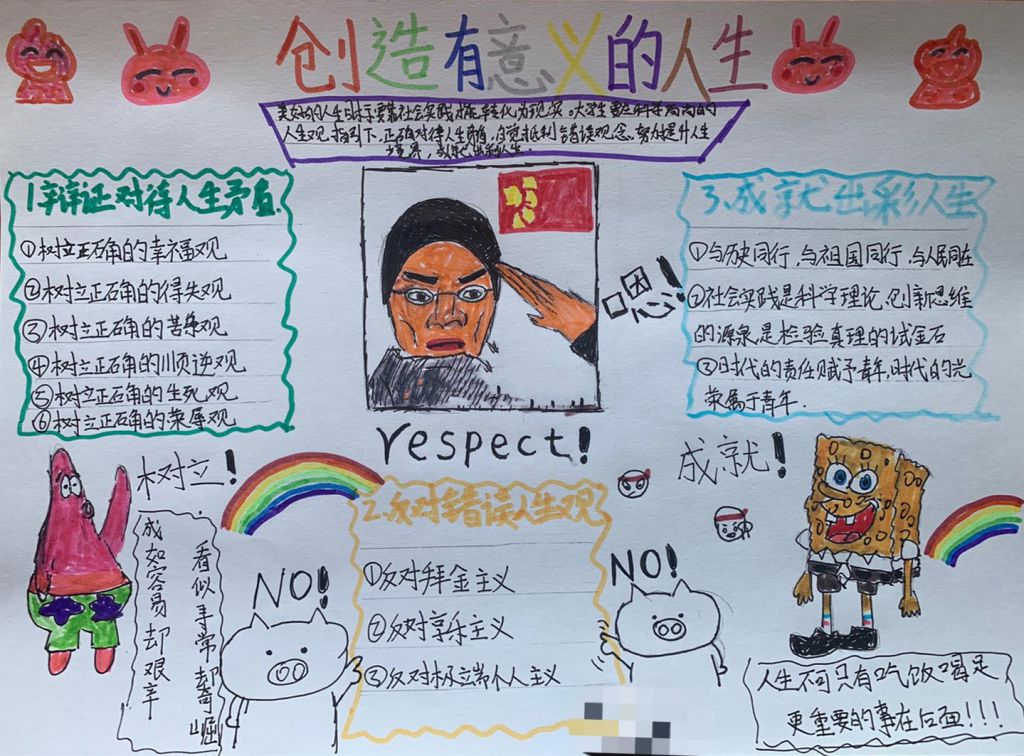 创造有意义的人生
美好的人生目标要靠社会实践才能转化为现实。大学生要在科学高尚的
人生观指引下,正确对待人生矛盾,自觉抵制错误观念,努力提升人生
境界,成就出彩人生.
1.辩证对待人生矛盾.
①树立正确的幸福观
②树立正确的得失观
③树立正确的苦乐观
④树立正确的顺逆观
⑤树立正确的生死观
⑥树立正确的荣辱观
嗯!
respect!
3.成就出彩人生
①与历史同行,与祖国同行,与人民同在
②社会实践是科学理论,创新思维
的源泉,是检验真理的试金石
③时代的责任赋予青年,时代的光
荣属于青年.
树立!
看似寻常却奇崛
成如容易却艰辛
NO!
2.反对错误人生观
①反对拜金主义
②反对享乐主义
③反对极端个人主义
NO!
成就!
人生不可只有吃饭喝足
更重要的事在后面!!!